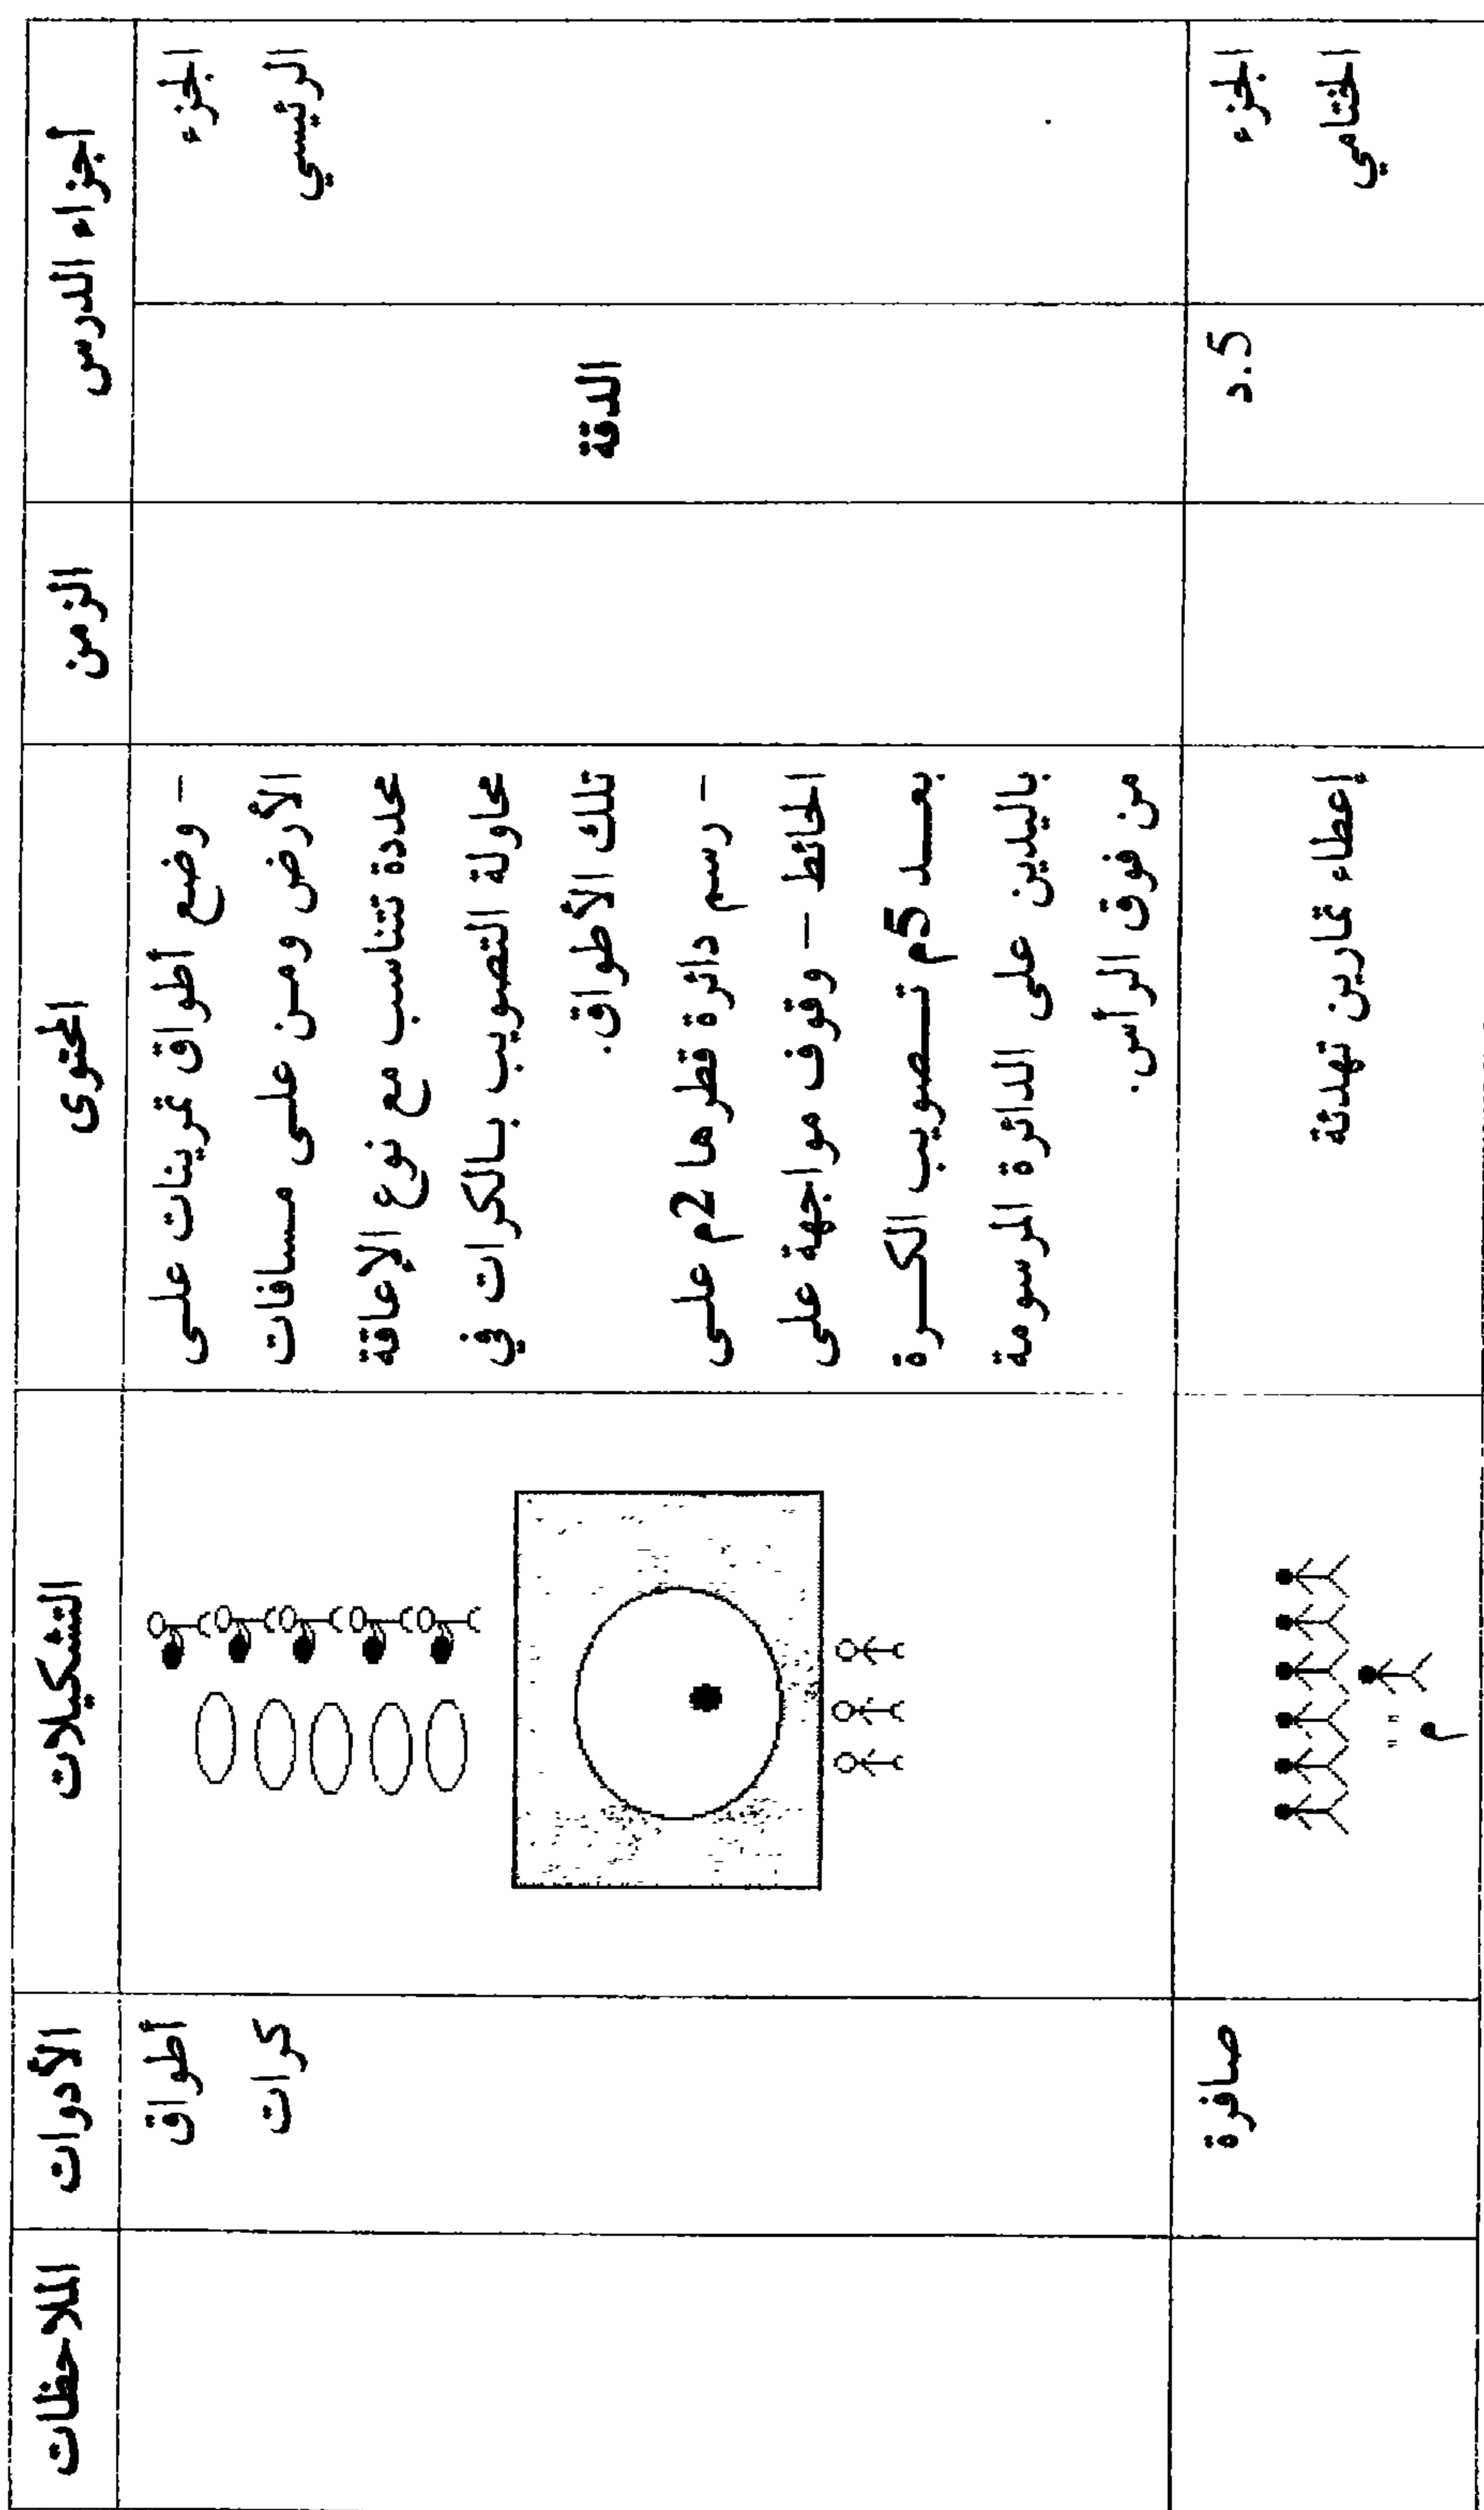 أجزاء الدرس
الزمن
المحتوى
التشكيلات
الأدوات
الملاحظات
الجزء
الرئيسي
الدقة
– وضع أطواق تمرينات على
الأرض ومن على مسافات
محددة تتناسب مع نوع الإعاقة
محاولة التصويب بالكرات في
تلك الأطواق.
– رسم دائرة قطرها 2م على
الحائط – وقوف مواجهة على
بعد 5م تصويب الكرة
باليدين على الدائرة المرسومة
من فوق الرأس.
أطواق
كرات
الجزء
الختامي
5.د
إعطاء تمارين تهدئة
م
صافرة